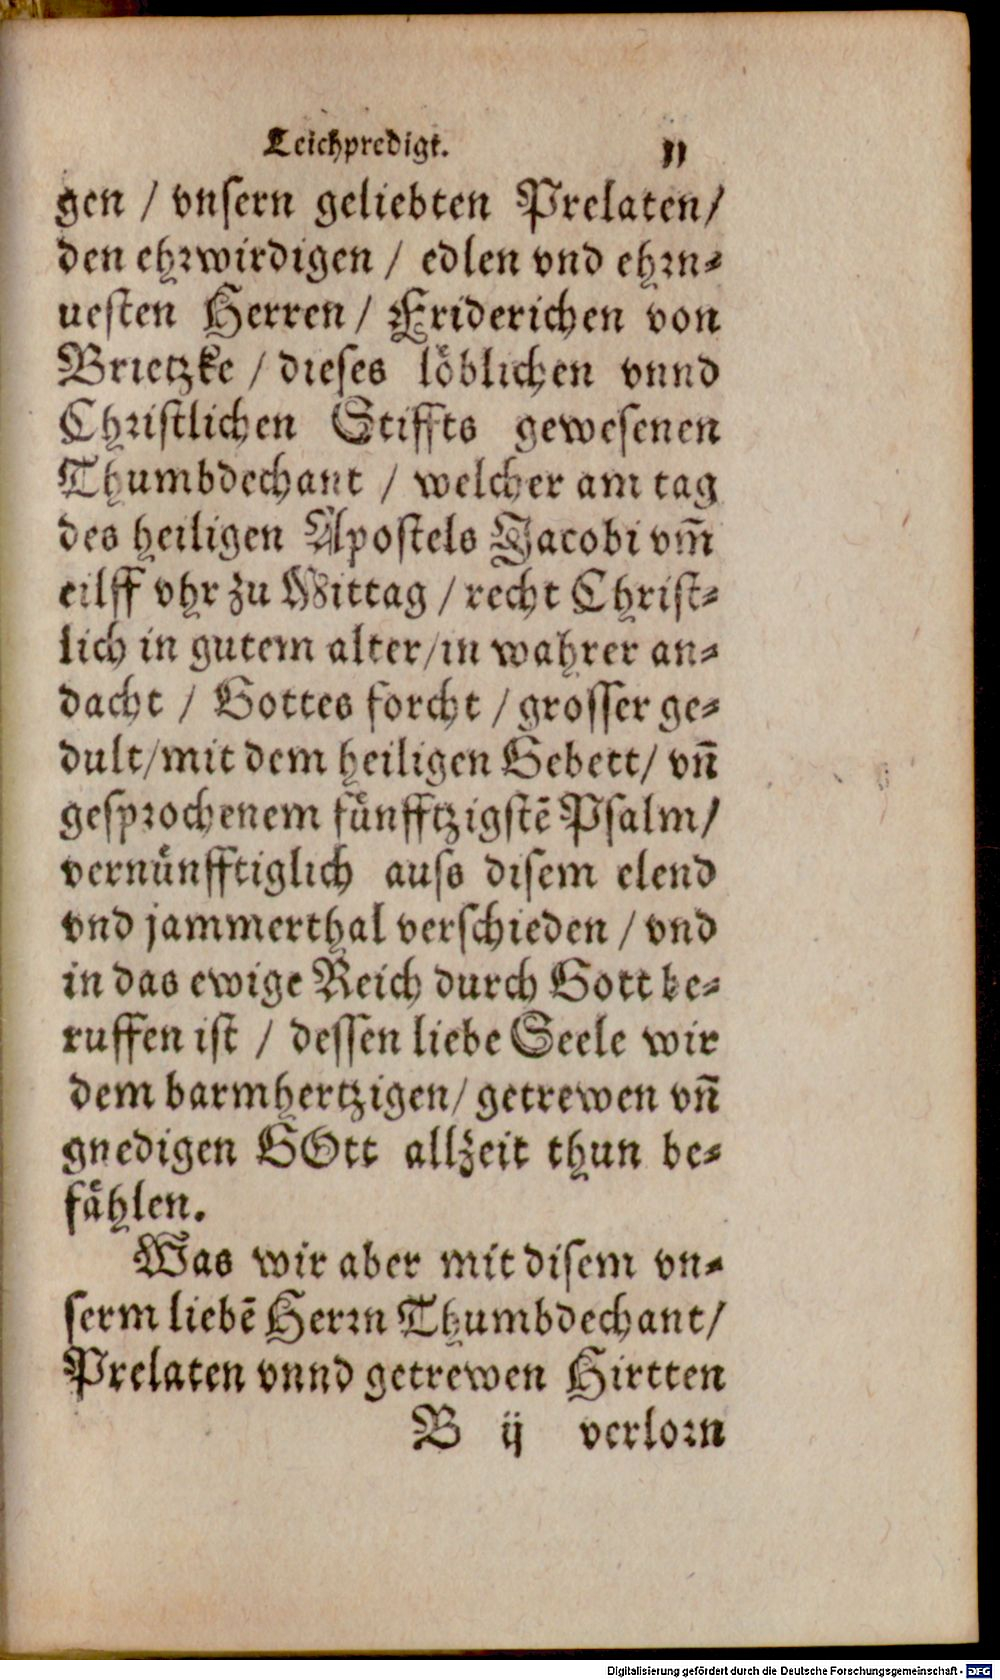 Leichpredigt. 11
gen / vnsern geliebten Prelaten /
den ehrwirdigen / edlen vnd ehrn-
uesten Herren / Friderichen von
Brietzke / dieses löblichen vnnd
Christlichen Stiffts gewesenen
Thumbdechant / welcher am tag
des heiligen Apostels Jacobi vm̃
eilff vhr zu Mittag / recht Christ-
lich in gutem alter / in wahrer an-
dacht / Gottes forcht / grosser ge-
dult / mit dem heiligen Gebett / vñ
gesprochenem fünfftzigstẽ Psalm /
vernünfftiglich auss disem elend
vnd jammerthal verschieden / vnd
in das ewige Reich durch Gott be-
ruffen ist / dessen liebe Seele wir
dem barmhertzigen / getrewen vñ
gnedigen GOtt allzeit thun be-
fählen.
Was wir aber mit disem vn-
serm liebẽ Herrn Thumbdechant /
Prelaten vnnd getrewen Hirtten
B ij verlorn
Digitalisierung gefördert durch die Deutsche Forschungsgemeinschaft - DFG